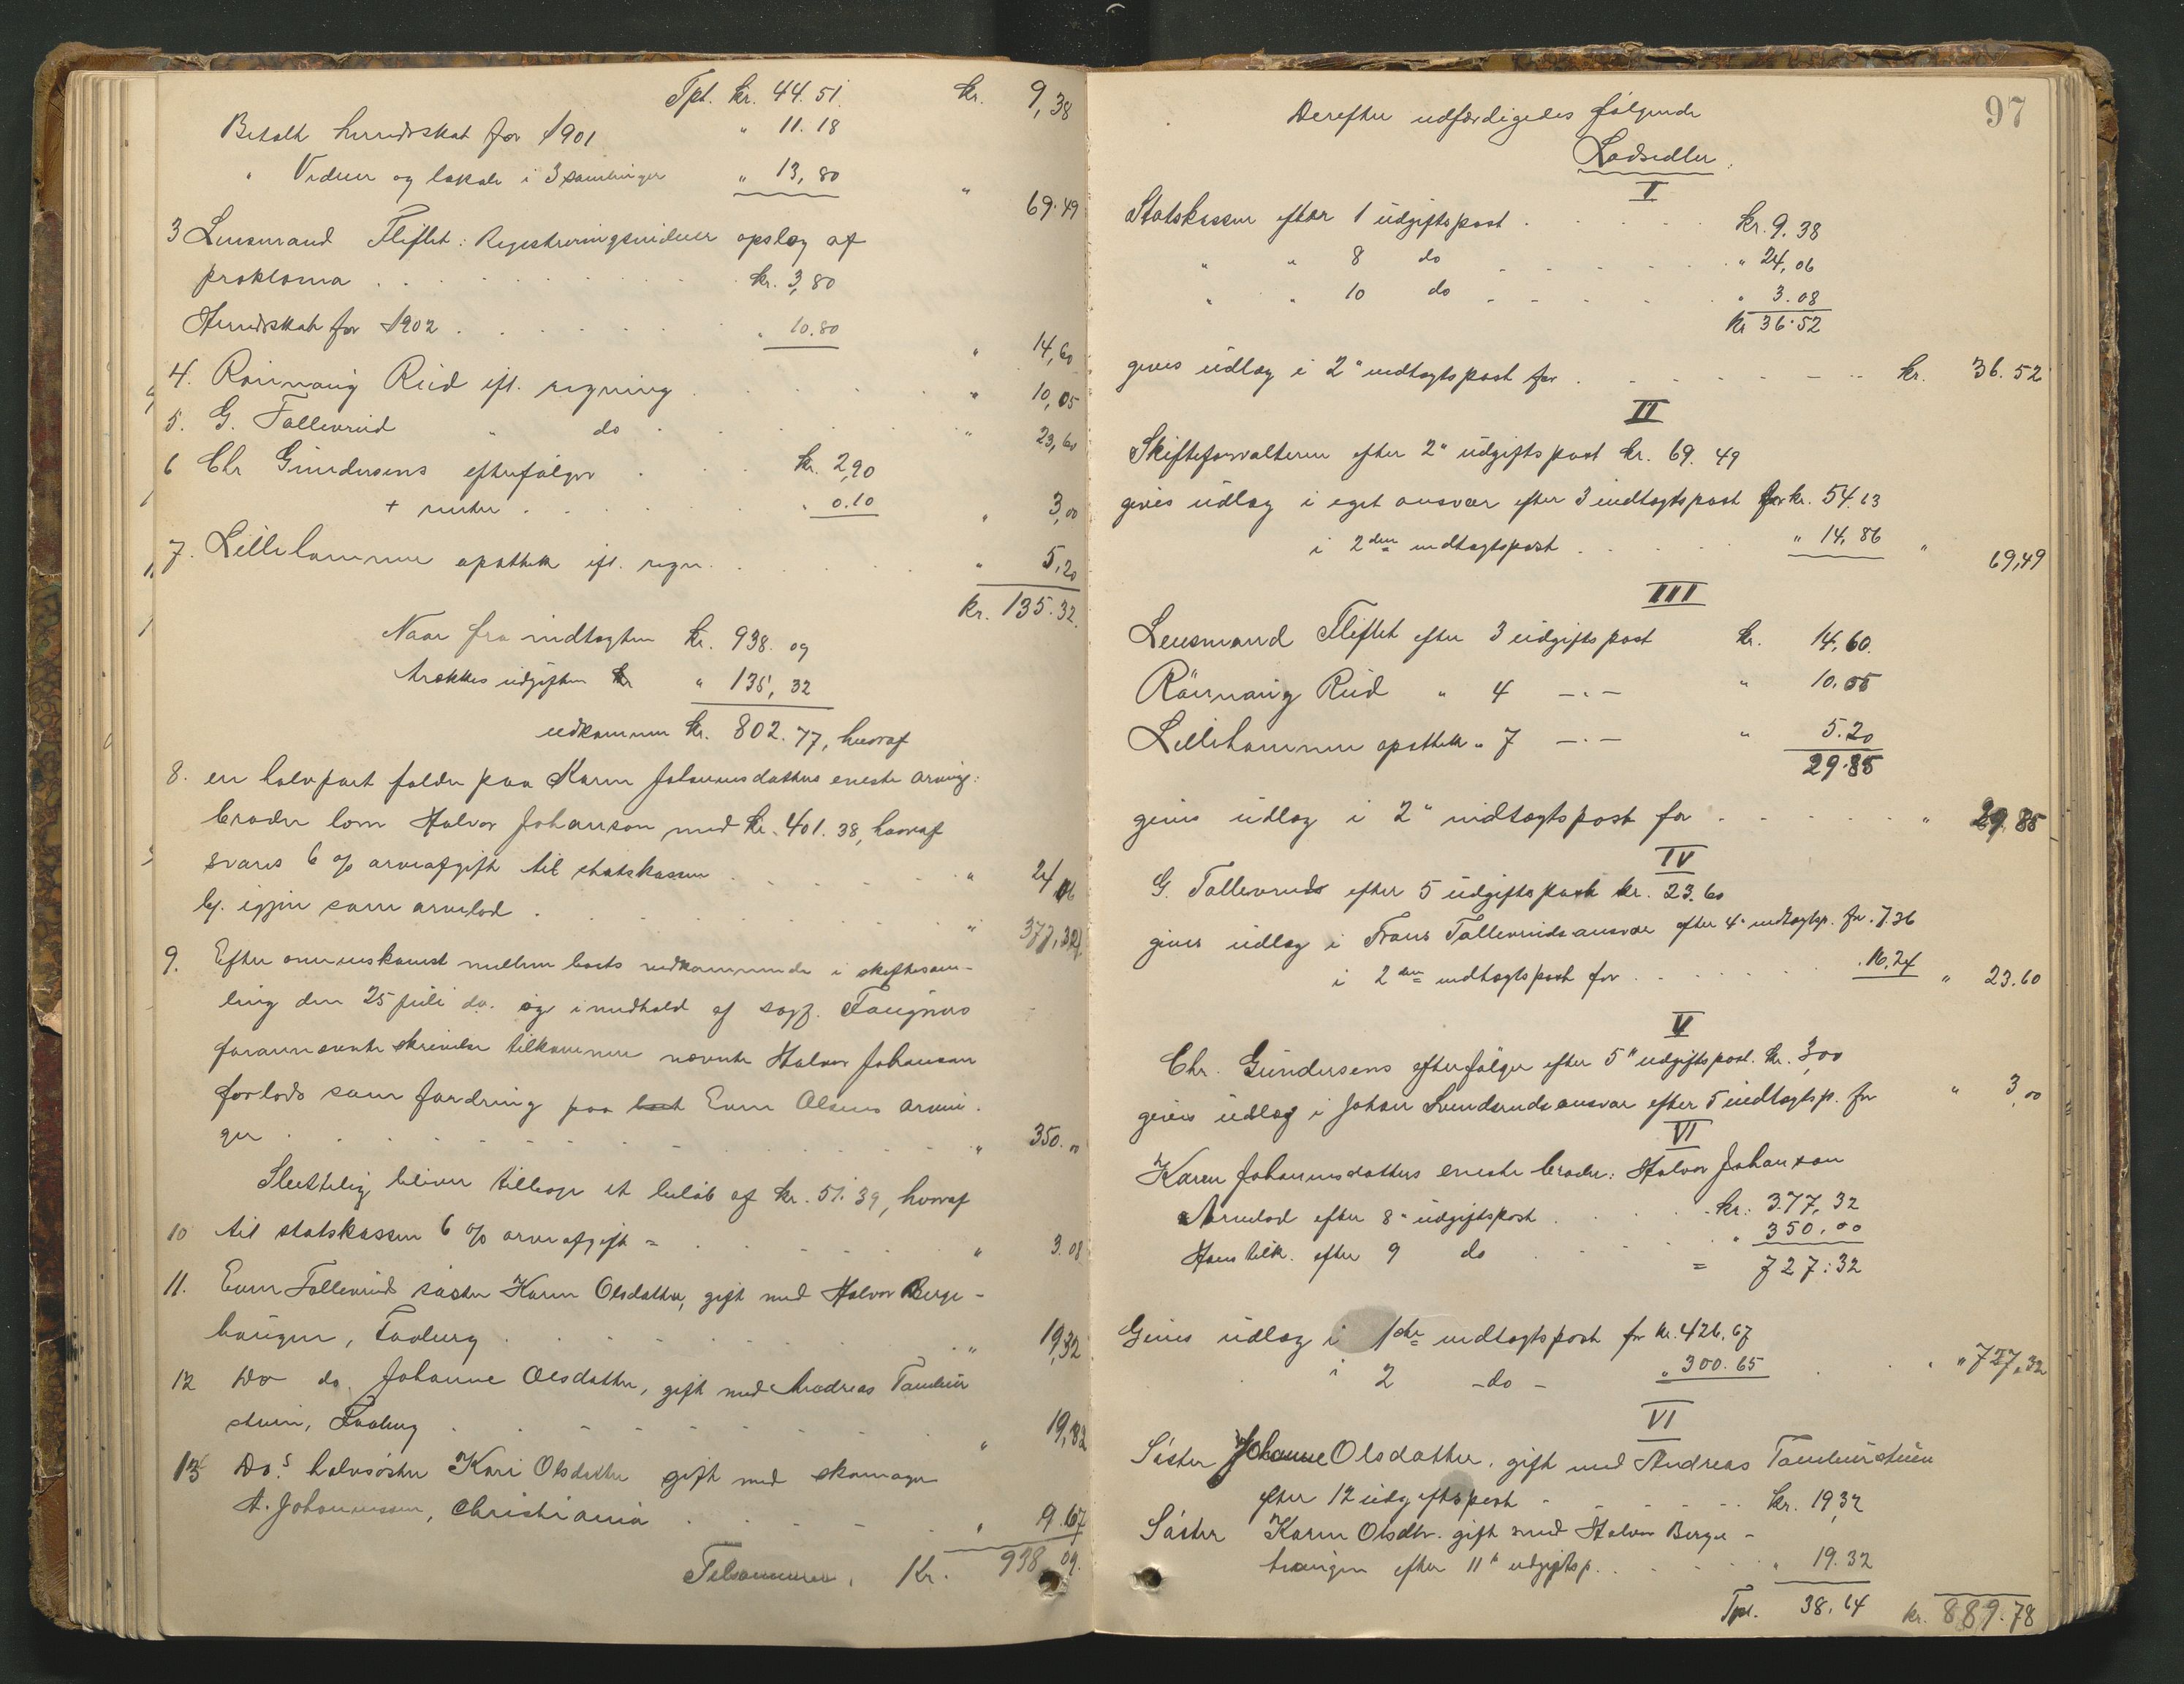 Tpt. kr. 44.51. kr. 9,38
Betalt herredsskat for 1901 " 11.18
" Vidner og lokale i 3 samlinger " 13,80 " 69.49
3 Lensmand Fliflet: Registreringsvidner opslag af
proklama . . . kr. 3,80
Herredsskat for 1902 . . . " 10.80 " 14,60
4. Rönnaug Rud ifl. regning . . . " 10,05
5. G. Tollevrud " do . . . " 23,60
6 Chr Gundersens efterfølger . . . kr. 2,90
+ renter . . . " 0.10 " 3,00
7. Lillehammer apothek ifl. regn. . . . " 5,20
kr. 135.32.
Naar fra indtægten kr. 938.09
trækkes udgiften kr " 135,32
udkommer kr. 802.77, hvoraf
8. en halvpart falder paa Karen Johannesdatters eneste arving:
broder lom Halvor Johanson med kr. 401.38, hvoraf
svares 6 % arveafgift til statskassen . . . " 24,06
lj. igjen som arvelod . . . " 377,32
9. Efter overenskomst mellem boets vedkommende i skiftesam-
ling den 25 juli da. og i medhold af sagf. Faugners
forannævnte skrivelse tilkommer nævnte Halvor Johansen
forlods som fordring paa boet Even Olsens arvin-
ger . . . " 350.00
Slutteligt bliver tilbage et beløb af kr. 51.39, hvoraf
10 til statskassen 6 % arveafgift = . . . " 3.08
11. Even Tollevruds søster Karen Olsdatter, gift med Halvor Berge-
haugen, Faaberg . . . " 19,32
12 Do do. Johanne Olsdatter, gift med Andreas Tambur
stuen, Faaberg . . . " 19,32
13 Do.s halvsøster Kari Olsdatter gift med skomager
A. Johannessen, Christiania . . . " 9.67
Tilsammen, Kr. 938.09.
97
Derefter udfærdigedes følgende
Lodsedler.
I
Statskassen efter 1 udgiftspost . . . kr. 9.38
" " 8 do . . . " 24,06
" " 10 do . . . " 3.08
kr 36.52
gives udlæg i 2" indtægtspost for . . . kr. 36.52
II
Skifteforvalteren efter 2" udgiftspost kr. 69.49
gives udlæg i eget ansvar efter 3 indtægtspost for kr. 54.63
i 2den indtægtspost . . . " 14,86 " 69,49
III
Lensmand Fliflet efter 3 udgiftspost kr. 14,60.
Rönnaug Rud " 4 -"- " 10.05
Lillehammer apothek " 7 -"- " 5.20
29.85
gives udlæg i 2" indtægtspost for . . . " 29,85
IV
G. Tollevruds efter 5 udgiftspost kr. 23.60
gives udlæg i Frans Tollevruds ansvar efter 4" indtægtsp. for " 7.36
i 2den indtægtspost for . . . " 16,24 " 23.60
V
Chr. Gundersens efterfølger efter 5" udgiftspost. kr. 3,00
gives udlæg i Johan Svendsruds ansvar efter 5 indtægtsp. for " 3,00
VI
Karen Johannesdatters eneste broder: Halvor Johanson
Arvelod efter 8" udgiftspost . . . kr. 377,32
Hans tilk. efter 9 do . . . " 350,00
= 727:32
Gives udlæg i 1ste indtægtspost for kr. 426,67
i 2 -do- " 300.65 . . " 727,32
VI
Søster Johanne Olsdatter, gift med Andreas Tamburstuen
efter 12 udgiftspost - . . . kr. 19,32
Søster Karen Olsdtr. gift med Halvor Berge-
haugen efter 11" udgiftsp. . . . " 19.32
Tpt. 38.64 kr. 889.78